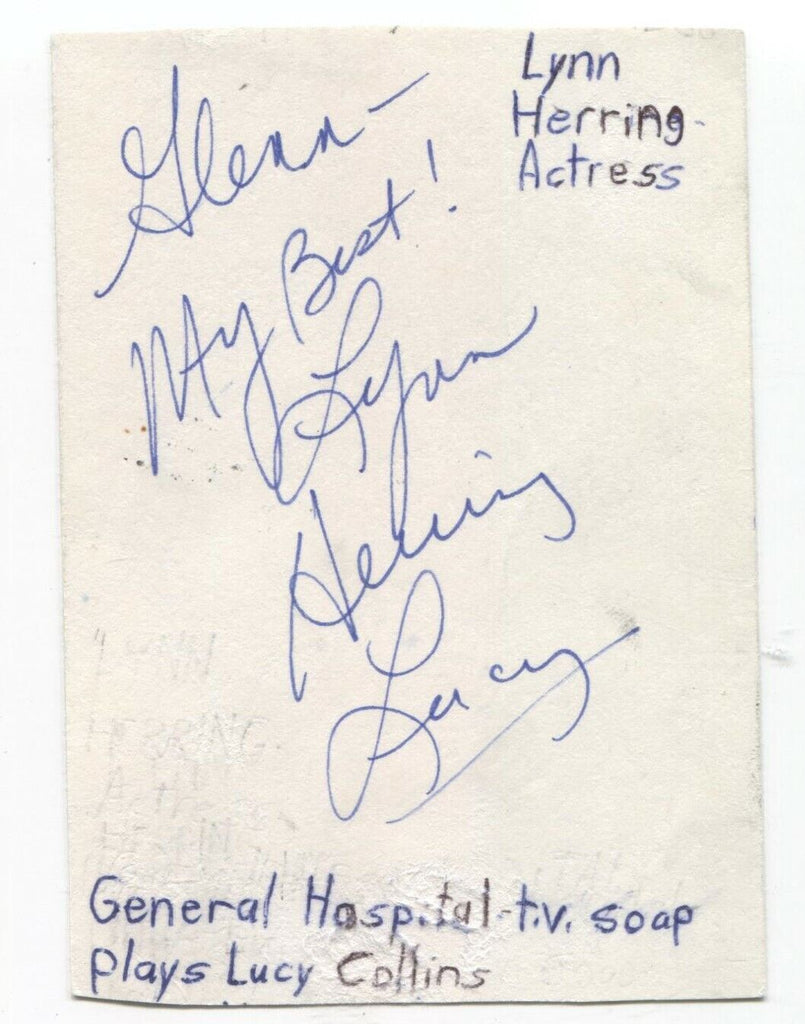 Lynn
Herring-
Actress
Glenn-
My Best!
Lynn
Herring
Lucy
General Hospital-t.v. soap
plays Lucy Collins